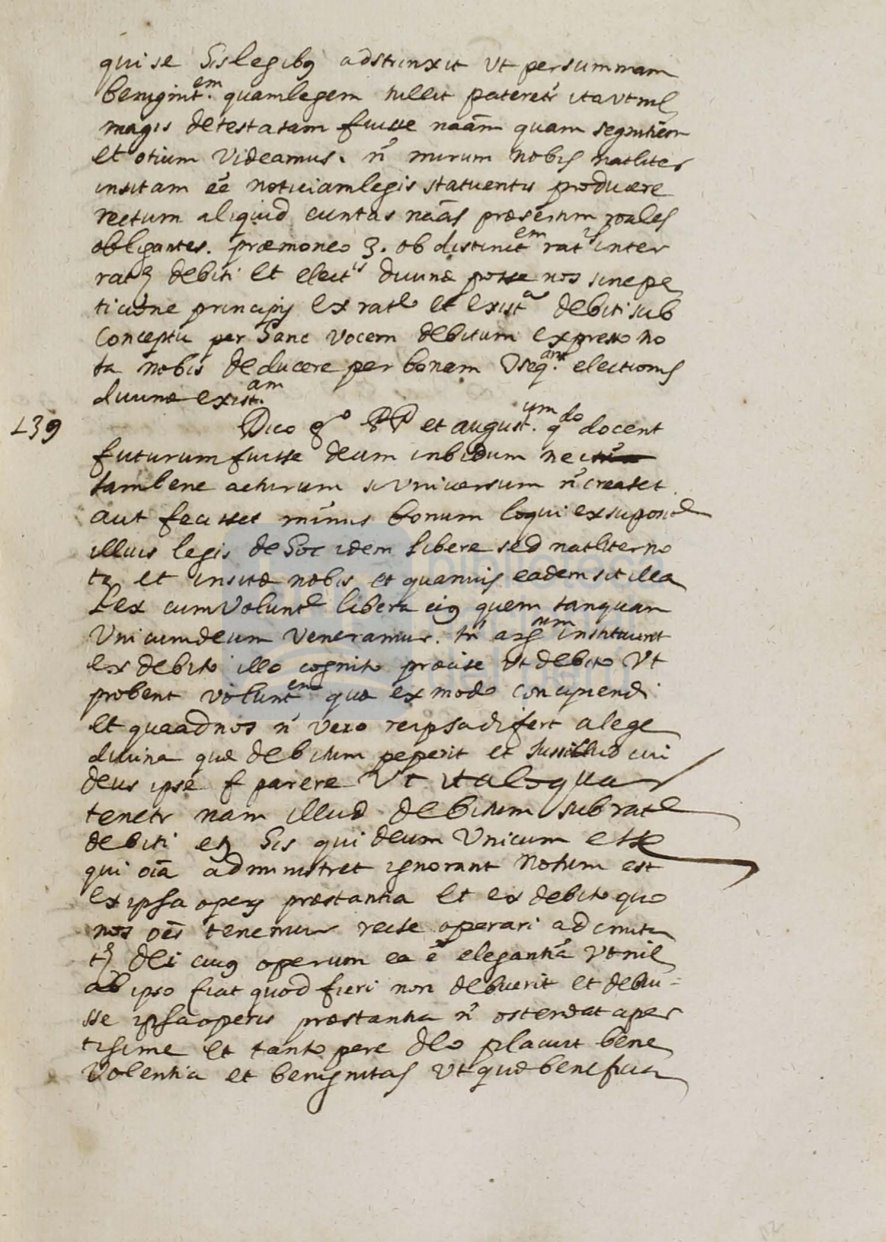 qui se his legibq adstrinxit ut per summam
benignit.em quam legem tulit pateretr ita ut nil
magis detestatam fuisse naām quam segnitiem
et otium videamus. n̄ mirum nobis natliter
insitam eē notitiam legis statuentis producere
rectum aliquid cuntas nāas præsertim roales
obligantes. præmoneo 3. ob distinct.em ratis inter
debiti et elect.is divinæ posse nos sine pe
titione principij ex rate et exist.a debiti sub
conceptu per hanc vocem debitum expresso no
ta nobis deducere per bonam electionis
divinæ exist.am
139 Dico gº PP et august.um qdo docent
futurum fuisse deum invidum nec
tam bene acturum si universum n̄ creasset
aut fecisset minus bonum loqui ex
illius legis de hoc idem libere sed natliter no
tæ et insitæ nobis et quamvis eadem sit illa
lex cum Volunte libera eiq quem tanquam
Unicum deum veneramur. tn̄ instituunt
ex debito illo cognito præcise ut debito ut
probent volunt.em quæ ex modo concipiendi
et quaad nos n̄ vero reipsa difert a lege
divina quæ debitum peperit et cui
deus ipse parere ut ita loquar
tenetr nam illud debitum sub rate
debiti his qui deum Unicum esse
qui oīa administret ignorant notum est
ex ipsa operis præstantia et ex debito quo
nos oēs tenemur recte operari ad
dei cuiq operum ea ē elegantia ut nil
ab ipso fiat quod fieri non debuerit et debui=
sse ipsa operis præstantia n̄ ostendat aper
tisime et tanto pere deo placuit bene
volentia et benignitas ut quæ